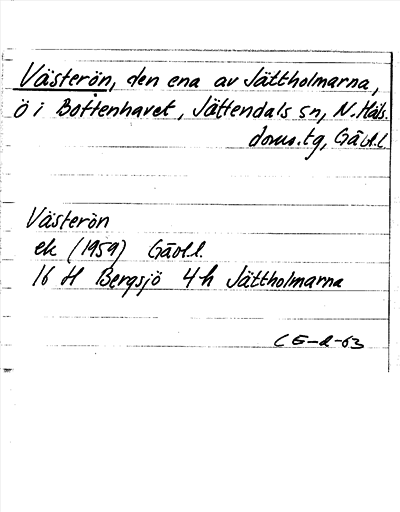 Västerön, den ena av Jättholmarna,
ö i Bottenhavet, Jättendals sn, N. Häls.
doms.tg, Gävl.l
Västerön
ek (1959) Gävl.l.
16 H Bergsjö 4 h Jättholmarna